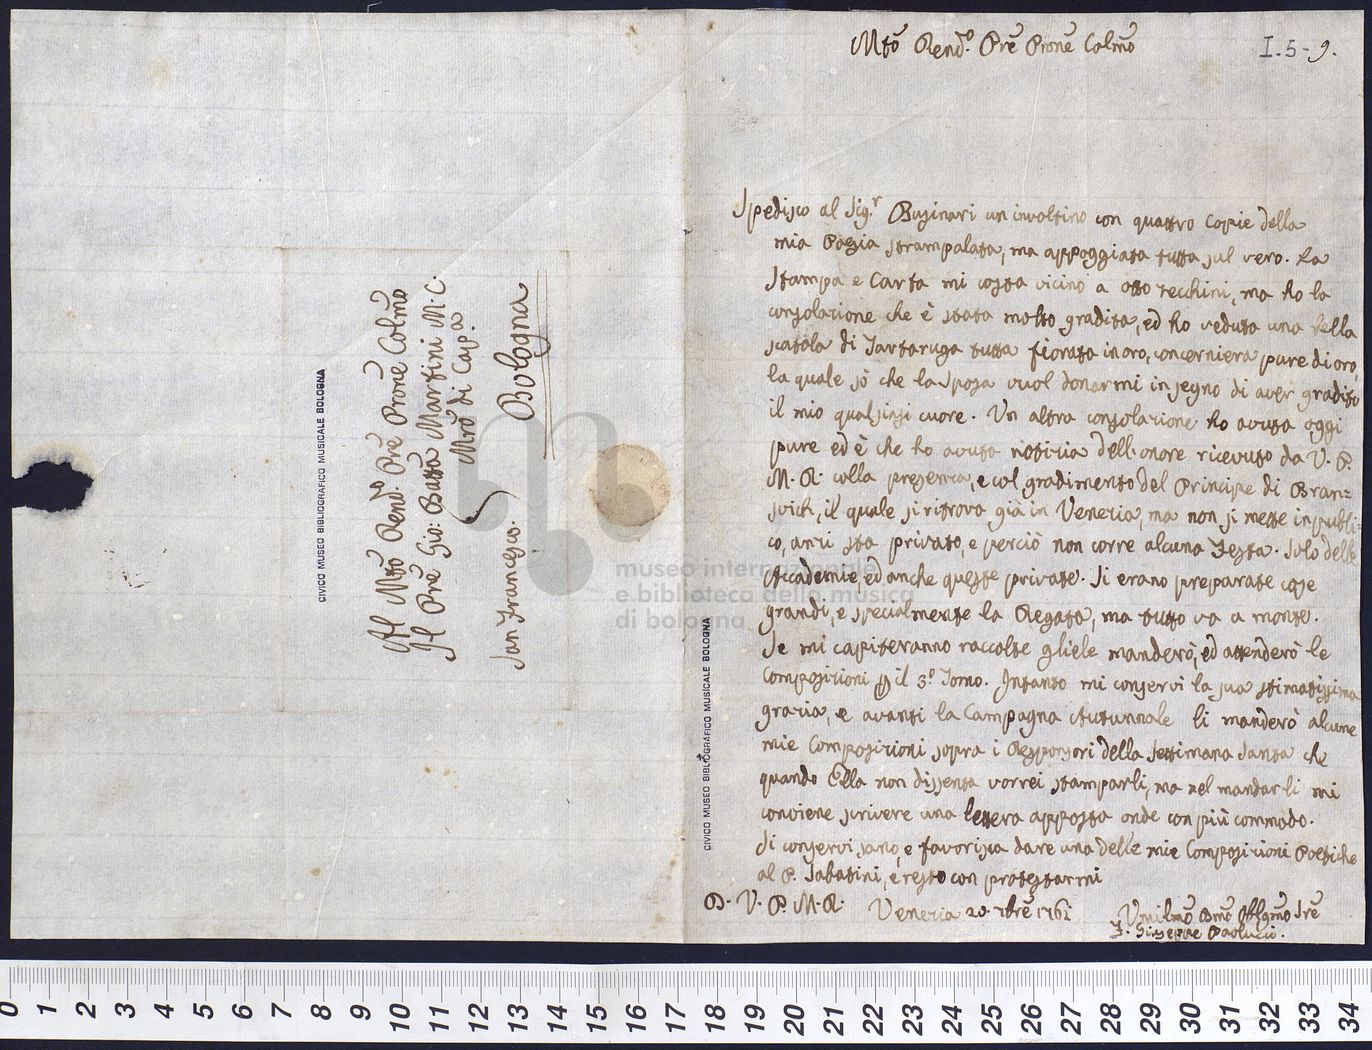 Mto Rendo. Pre Prone Colmo
I.5-9.
Spedisco al Sigr Businari un involtino con quattro copie della
mia Poesia strampalata, ma appoggiata tutta sul vero. La
stampa e Carta mi costa vicino a otto zecchini, ma ho la
consolazione che è stata molto gradita, ed ho veduta una bella
scatola di Tartaruga tutta fiorata in oro, con cerniera pure di oro,
la quale sò che la sposa vuol donarmi in segno di aver gradito
il mio qualsisisi cuore. Un altra consolazione ho avuta oggi
pure ed è che ho avuta notizia dell onore ricevuto da V. P.
M. R. colla presenza, e col gradimento del Principe di Bran=
svich, il quale si ritrova già in Venezia, ma non si mette in publi=
co, anzi sta privato, e perciò non corre alcuna Festa. Solo delle
Accademie, ed anche queste private. Si erano preparate cose
grandi, e specialmente la Regata, ma tutto va a monte.
Se mi capiteranno raccolte gliele manderò, ed attenderò le
Composizioni p il 3o. Tomo. Intanto mi conservi la sua stimatissima
grazia, e avanti la Campagna Autunnale li manderò alcune
mie Composizioni sopra i Responsori della Settimana Santa che
quando Ella non dissenta vorrei stamparli, ma nel mandarli mi
conviene scrivere una lettera apposta onde con più commodo.
Si conservi sano, e favorisca dare una delle mie Composizioni Poetiche
al P. Sabatini, e resto con protestarmi
D. V. P. M. R. Venezia 20. 7bre 176
Umilmo Dmo Obblgmo Sre
F. Giuseppe Paolucci.
Al Mto Rendo. Pre Prone Colmo
Il Pre Gio: Batta Martini M. C.
Mro di Capa.
San Francesco. Bologna
CIVICO MUSEO BIBLIOGRAFICO MUSICALE BOLOGNA
CIVICO MUSEO BIBLIOGRAFICO MUSICALE BOLOGNA
museo internazionale
e biblioteca della musica
di bologna
0 1 2 3 4 5 6 7 8 9 10 11 12 13 14 15 16 17 18 19 20 21 22 23 24 25 26 27 28 29 30 31 32 33 34